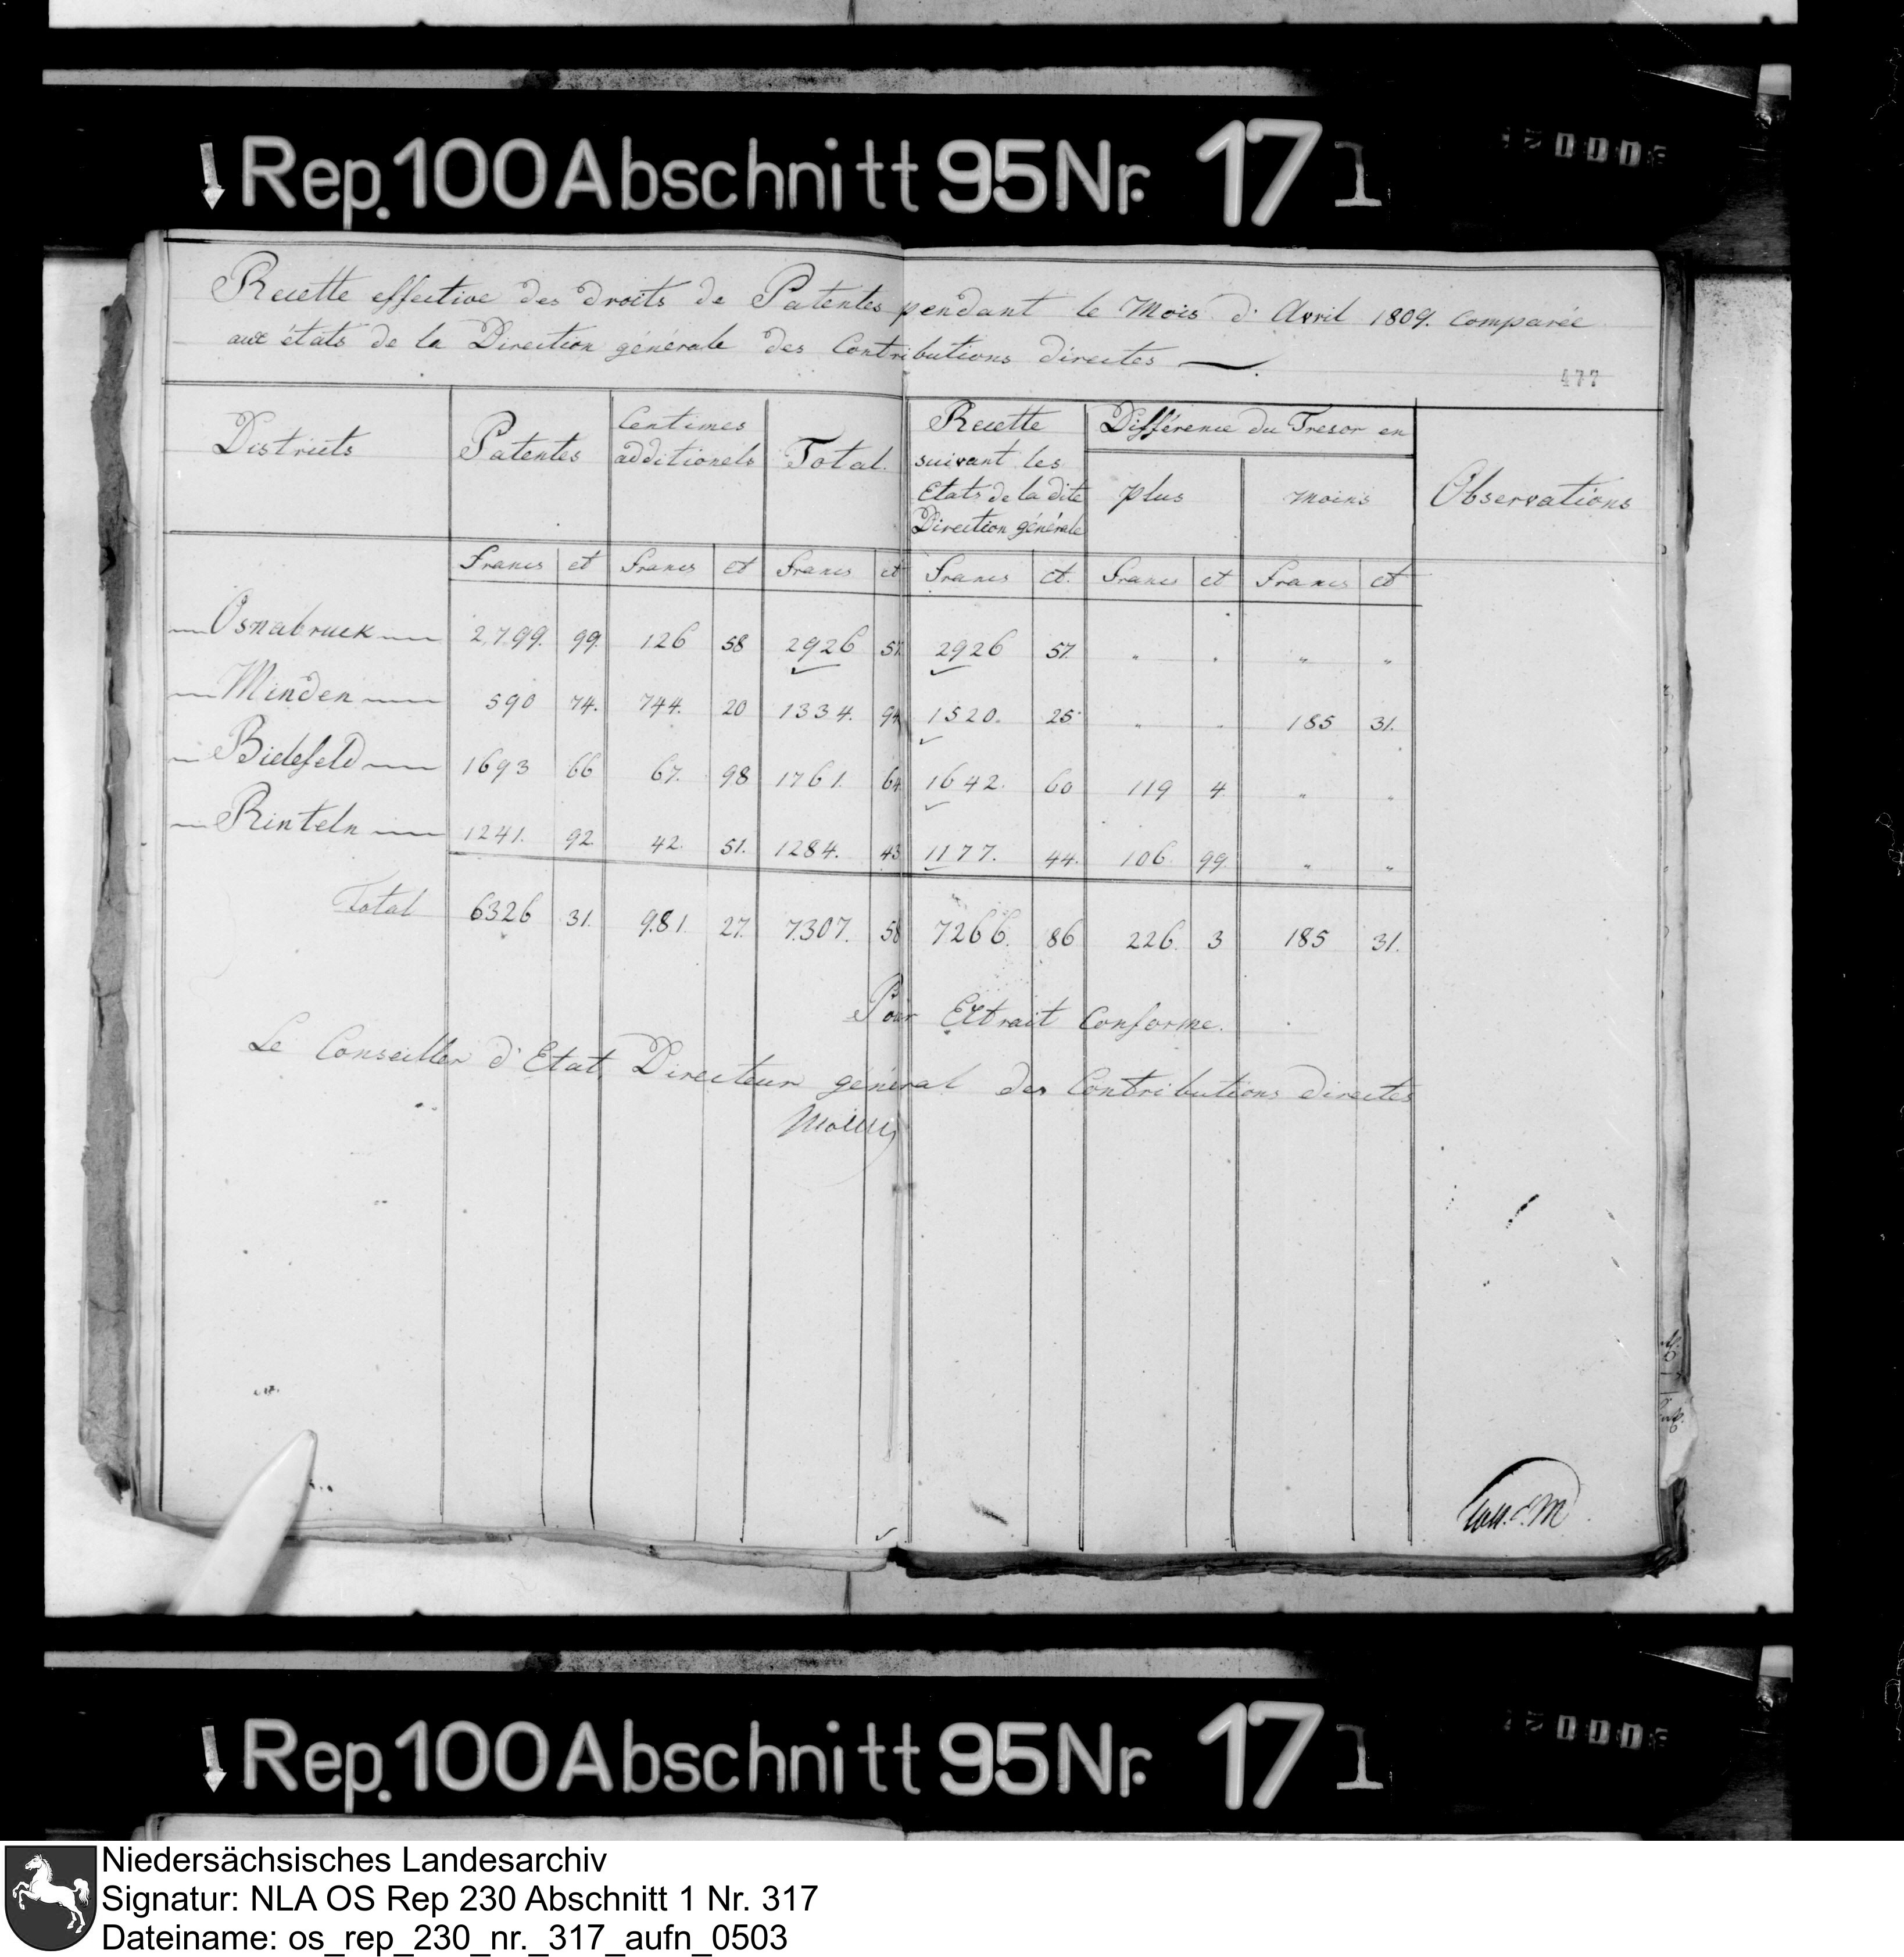 Rep. 100 Abschnitt 95 Nr. 171
Recette effective des droits de Patentes pendant le Mois d'Avril 1809. Comparée
aux états de la Direction générale des Contributions directes
477
Districts Patentes Centimes additionels Total. Recette suivant les Etats de la dite Direction générale Différence du Tresor en plus moins Observations
Francs ct Francs ct Francs ct Francs ct. Francs ct Francs ct
Osnabruck 2799. 99. 126 58 2926 57. 2926 57. " " " "
Minden 590 74. 744. 20 1334. 94 1520. 25 " " 185 31.
Bielefeld 1693 66 67. 98 1761. 64 1642. 60 119 4. " "
Rinteln 1241. 92. 42. 51. 1284. 43 1177. 44. 106 99 " "
Total 6326 31. 981. 27. 7307. 58 7266. 86 226. 3 185 31.
Pour Extrait Conforme.
Le Conseiller d'Etat, Directeur général des Contributions directes
Rep. 100 Abschnitt 95 Nr. 171
Niedersächsisches Landesarchiv
Signatur: NLA OS Rep 230 Abschnitt 1 Nr. 317
Dateiname: os_rep_230_nr._317_aufn_0503